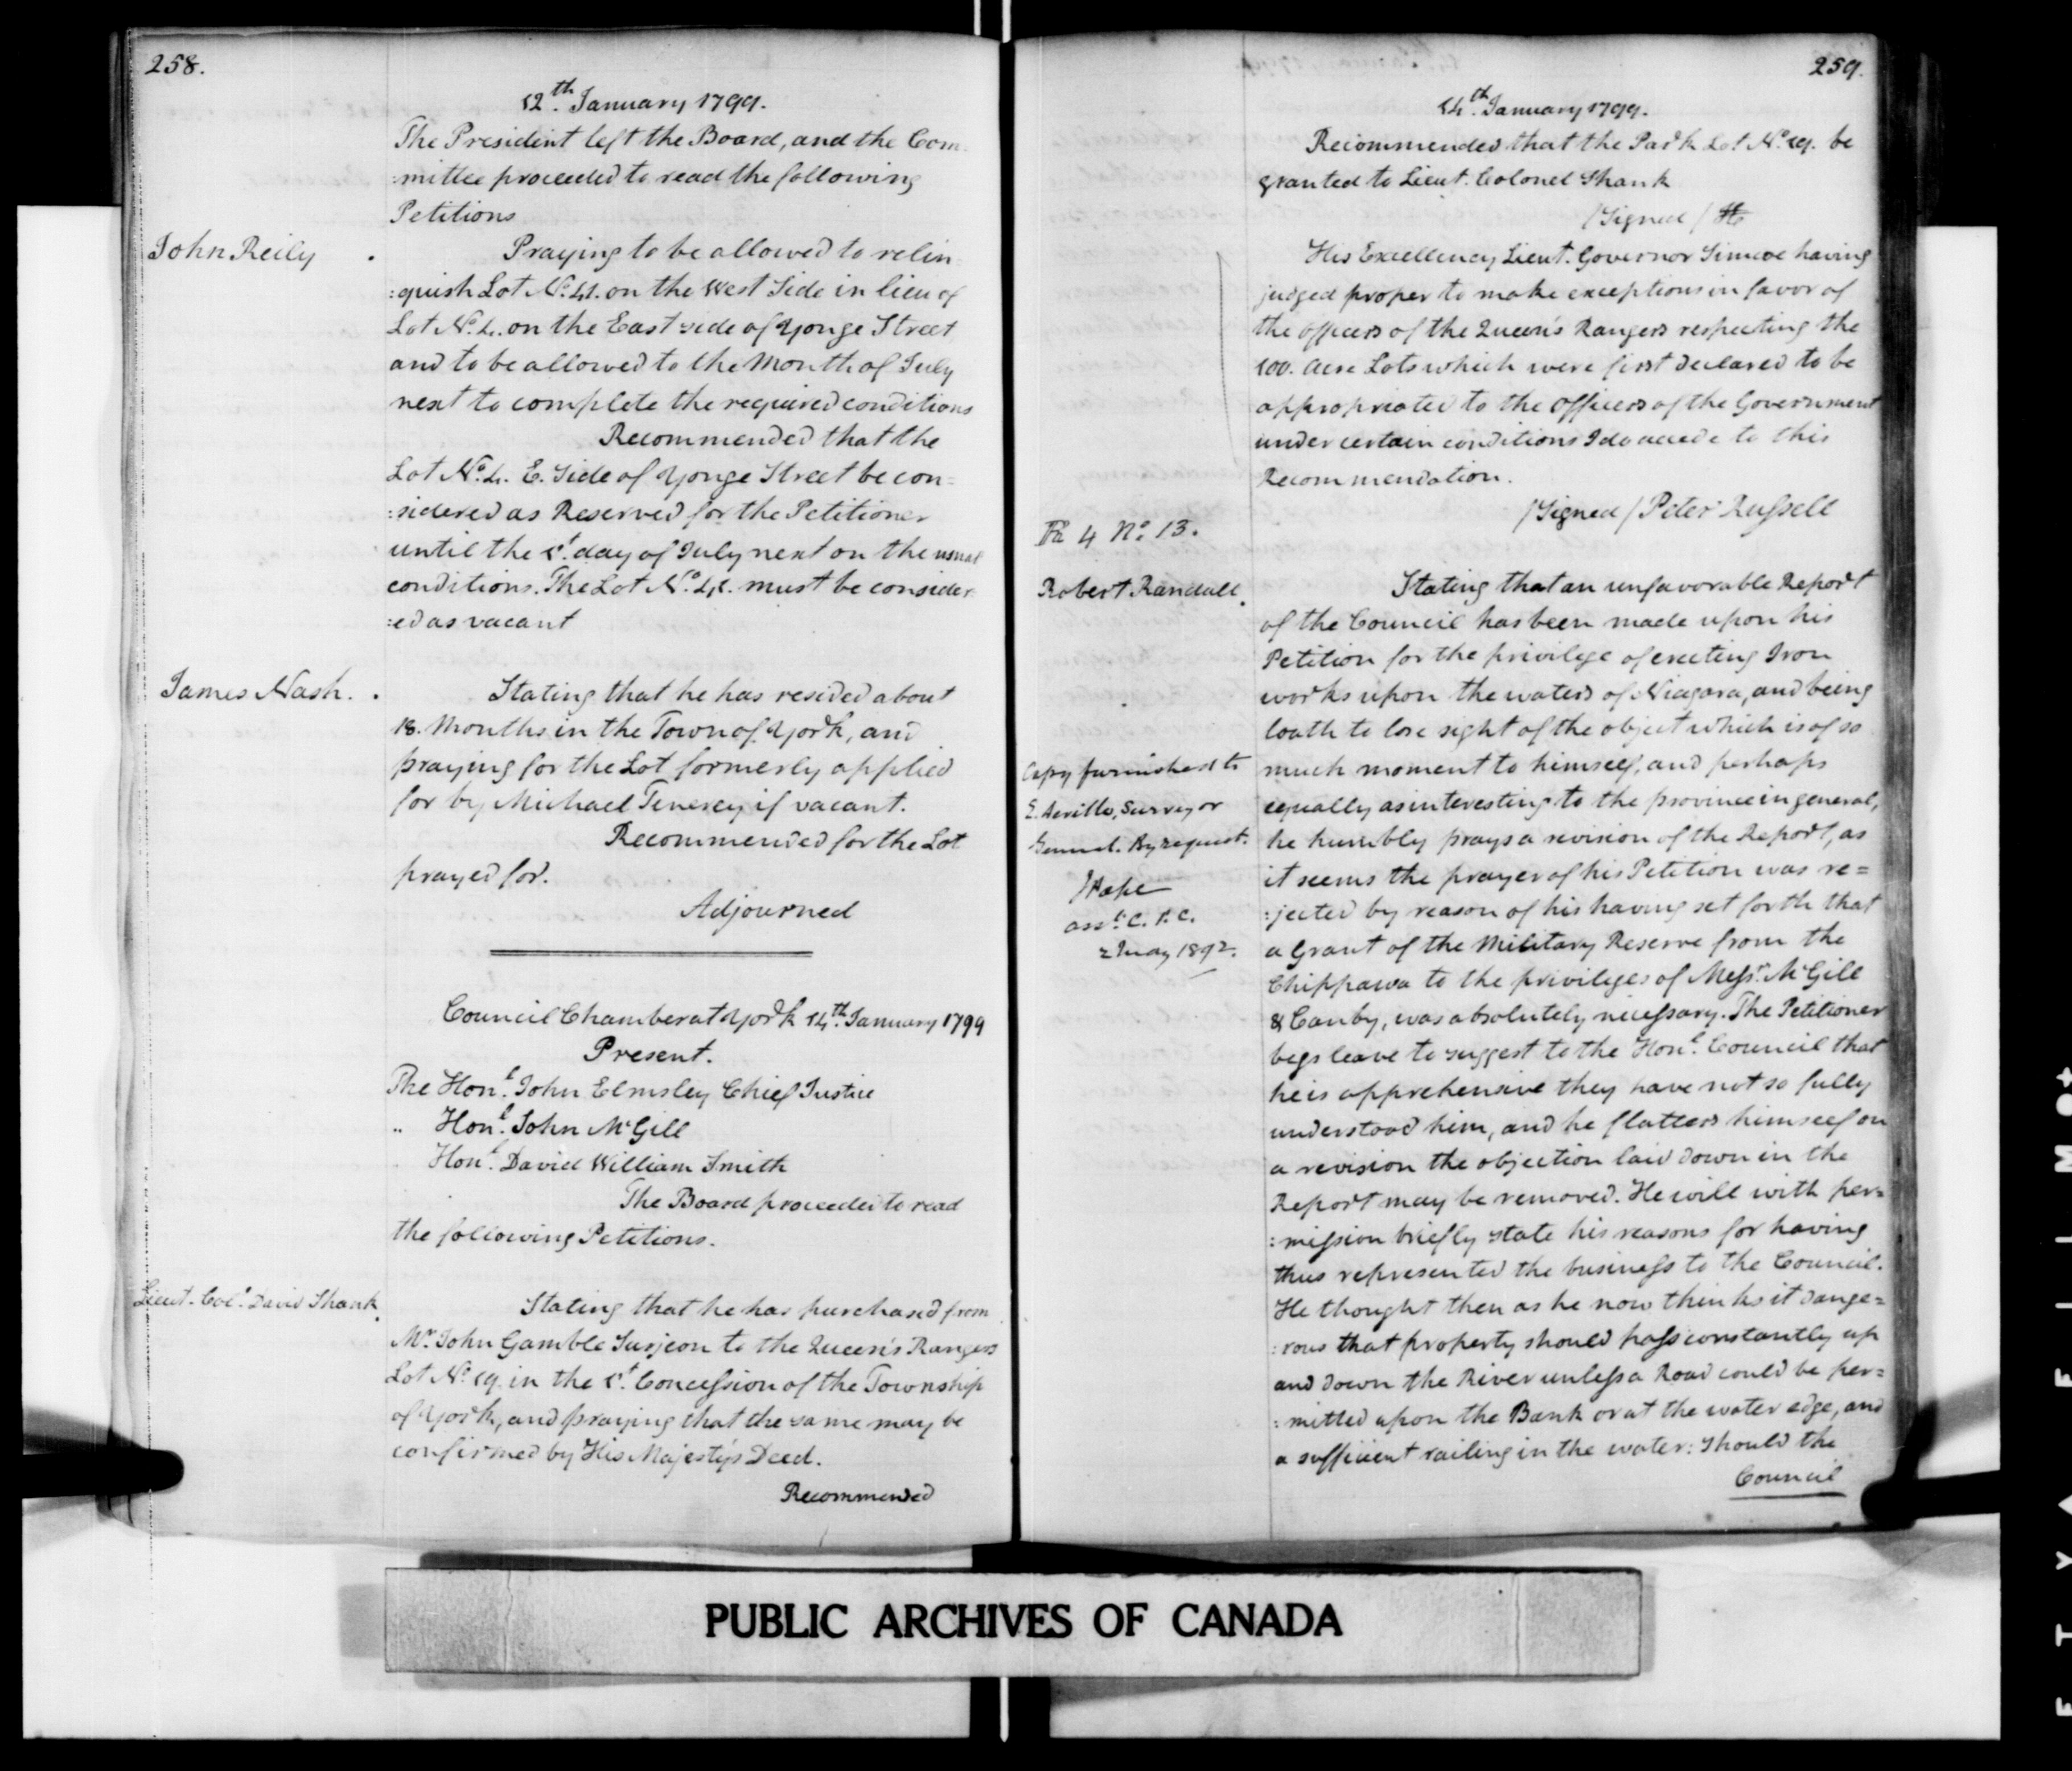 258.
12th. January 1799.
The President left the Board, and the Com
:mittee proceeded to read the following
Petitions
John Reily .
Praying to be allowed to relin
:quish Lot No. 41. on the West Side in lieu of
Lot No. 4. on the East side of Yonge Street
and to be allowed to the Month of July
next to complete the required conditions
Recommended that the
Lot No. 4. E. Side of Yonge Street be con=
:sidered as Reserved for the Petitioner
until the 1st. day of July next on the usual
conditions. The Lot No. 41. must be consider
:ed as vacant
James Nash. .
Stating that he has resided about
18. Months in the Town of York, and
praying for the Lot formerly applied
for by Michael if vacant.
Recommended for the Lot
prayed for.
Adjourned
Council Chamber at York 14th. January 1799
Present.
The Honl. John Elmsley Chief Justice
" Honl. John McGill
Honl. David William Smith
The Board proceeded to read
the following Petitions.
Lieut. Col. David Shank.
Stating that he has purchased from
Mr. John Gamble Surjeon to the Queen's Rangers
Lot No. 19. in the 1st. Concession of the Township
of York, and praying that the same may be
confirmed by His Majesty's Deed.
Recommended
259.
14th. January 1799.
Recommended that the Park Lot No. 19. be
granted to Lieut. Colonel Shank
/Signed/
His Excellency Lieut. Governor Simcoe having
judged proper to make exceptions in favor of
the officers of the Queen's Rangers respecting the
100. Acre Lots which were first declared to be
appropriated to the Officers of the Government
under certain conditions I do accede to this
Recommendation.
/Signed/ Peter Russell
4 No. 13.
Robert Randall.
Stating that an unfavorable Report
of the Council has been made upon his
Petition for the privilege of erecting Iron
works upon the waters of Niagara, and being
loath to lose sight of the object which is of so
much moment to himself, and perhaps
equally as interesting to the province in general,
he humbly prays a revision of the Report, as
it seems the prayer of his Petition was re=
:jected by reason of his having set forth that
a Grant of the Military Reserve from the
Chippawa to the privileges of Messrs. McGill
& Canby, was absolutely necessary. The Petitioner
begs leave to suggest to the Honl. Council that
he is apprehensive they have not so fully
understood him, and he flatters himself on
a revision the objection laid down in the
Report may be removed. He will with per=
:mission briefly state his reasons for having
thus represented the business to the Council.
He thought then as he now thinks it dange=
:rous that property should pass constantly up
and down the River unless a Road could be per=
:mitted upon the Bank or at the water edge, and
a sufficient railing in the water: Should the
Council
Copy furnished to
E. Deville, Surveyor
General. By request.
asst. C. P. C.
2 May 1892.
PUBLIC ARCHIVES OF CANADA